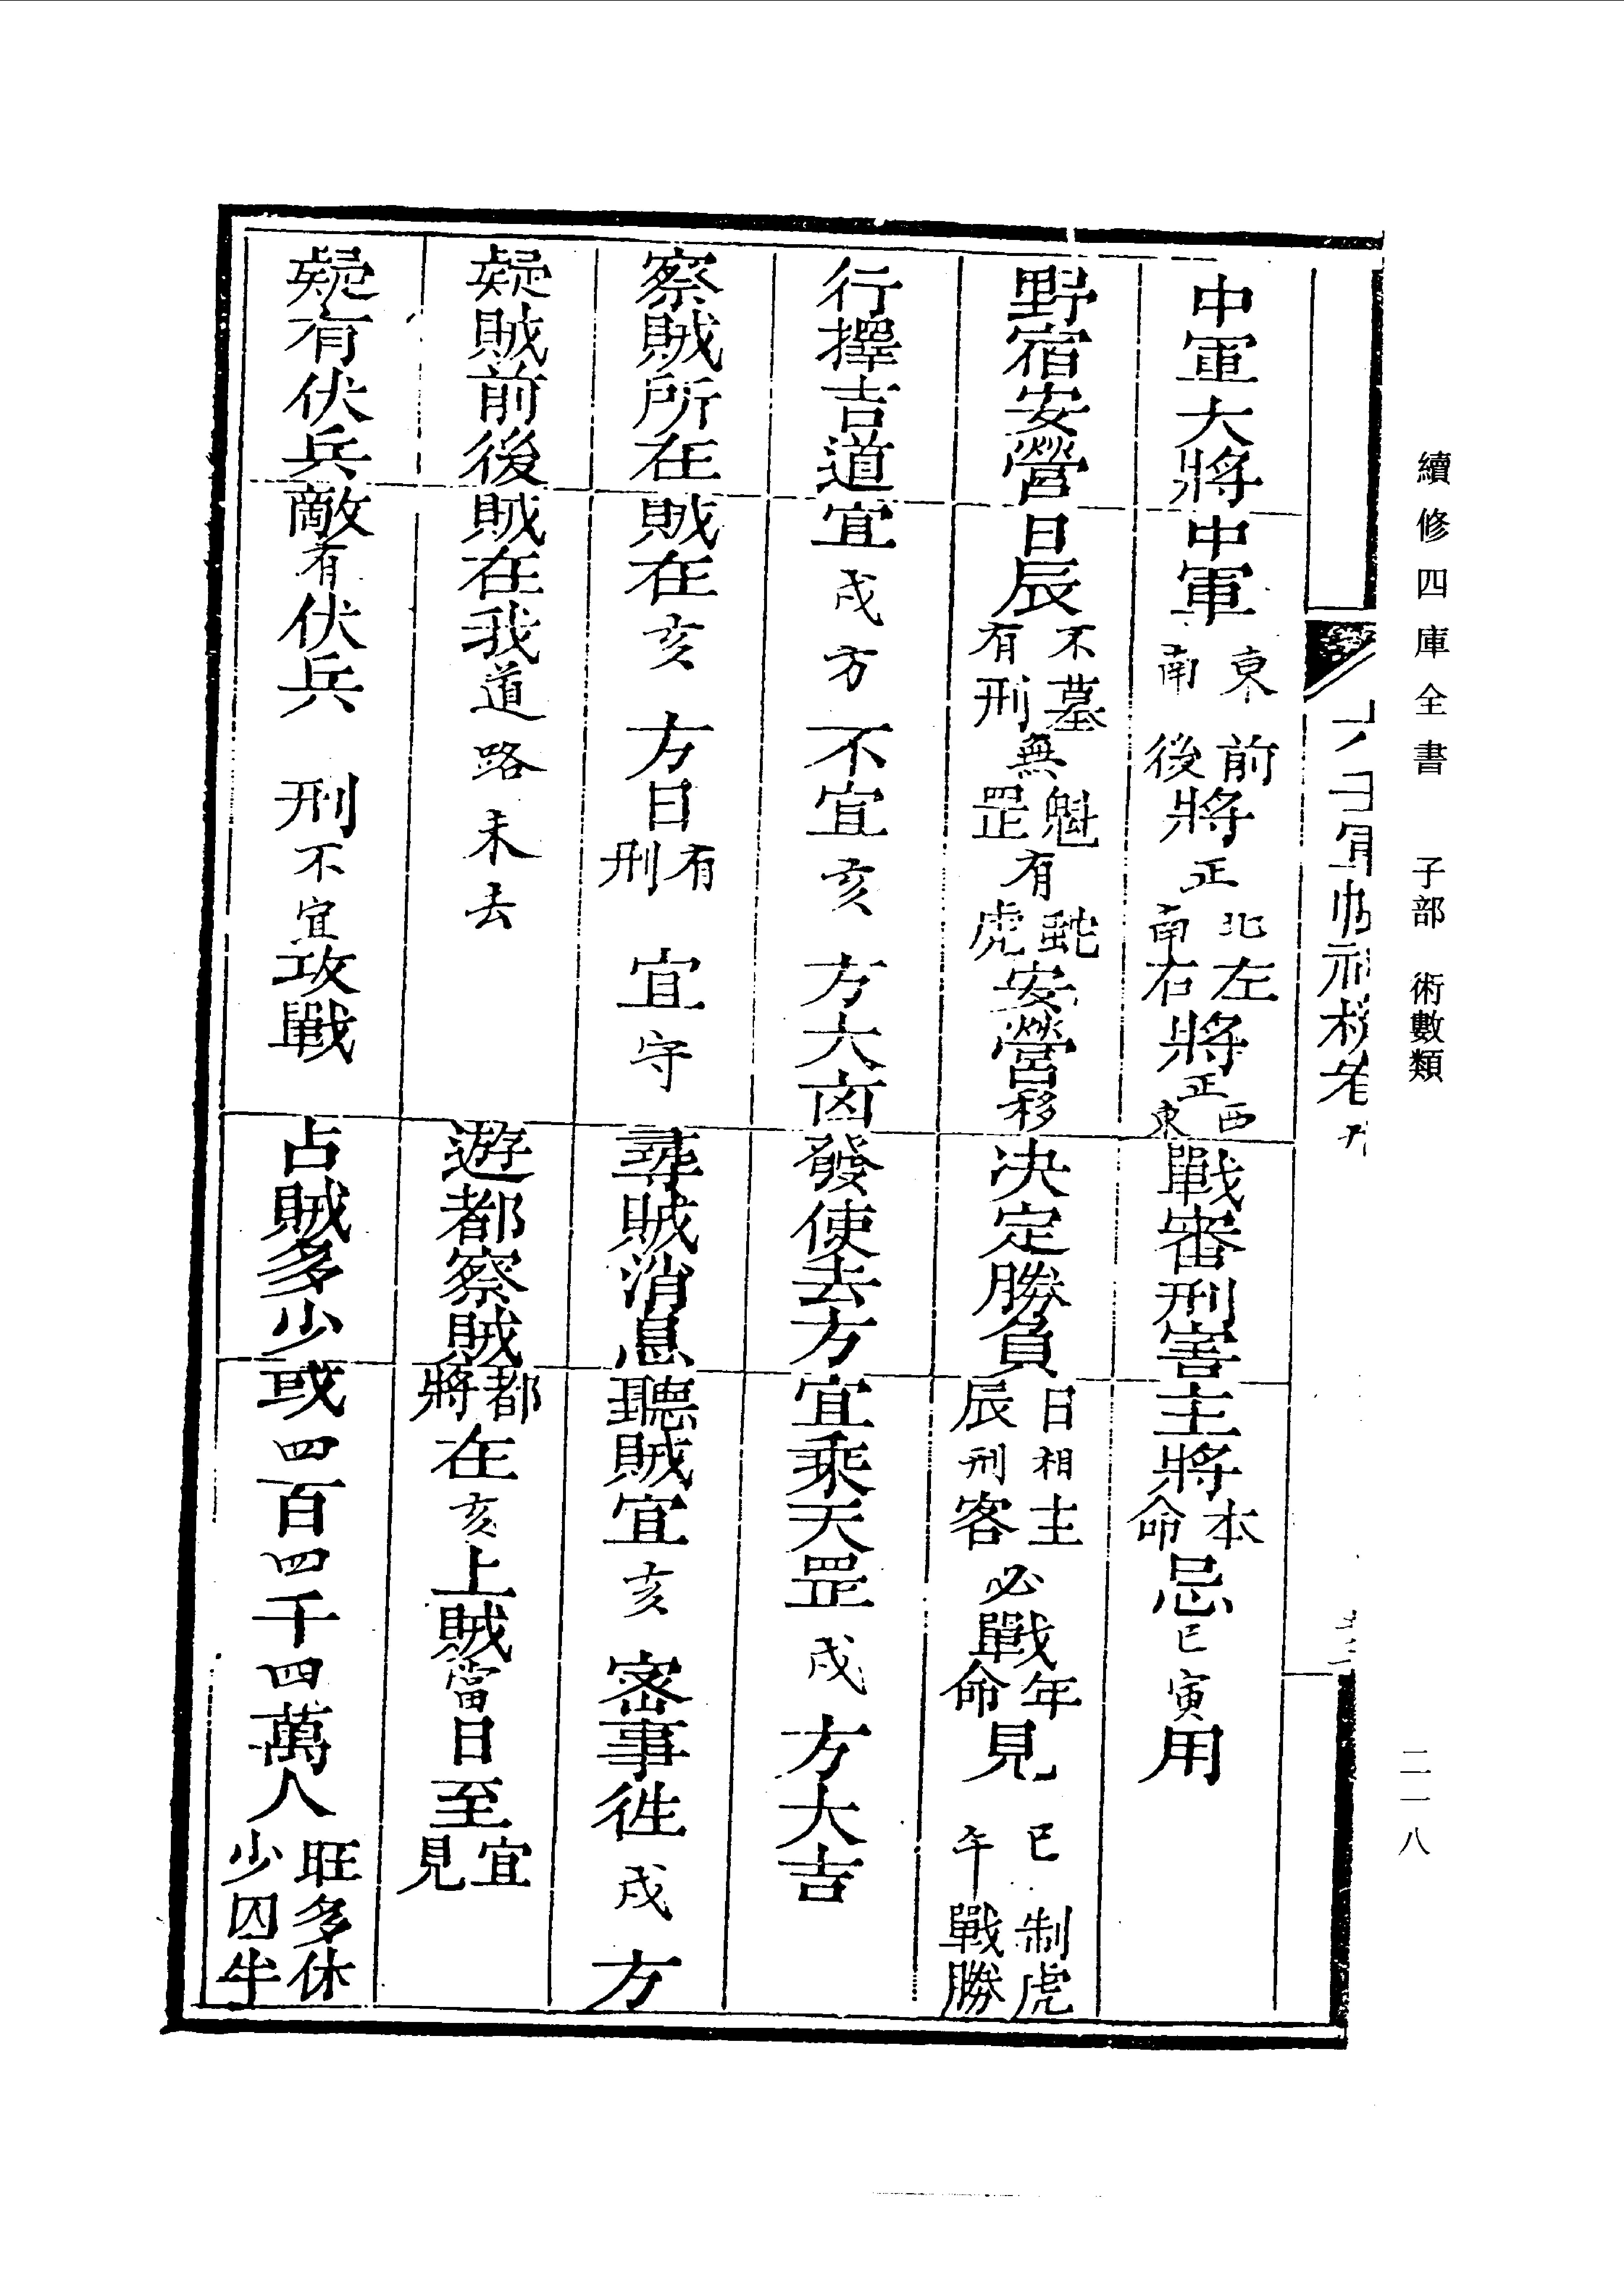 續修四庫全書　子部　術數類
二一八
中軍大將中軍東南前後將正北南左右將正西東戰審刑害主將本命忌巳寅用
野宿安營日辰不有墓刑無魁罡有虵虎安營移决定勝負日辰相刑主客必戰年命見巳午制虎戰勝
行擇吉道宜戌方不宜亥方大凶發使去方宜乘天罡戌方大吉
察賊所在賊在亥方日有刑宜守尋賊消息聽賊宜亥密事徃戌方
疑賊前後賊在我道路未去遊都察賊都將在亥上賊當日至宜見
疑有伏兵敵有伏兵刑不宜攻戰占賊多少或四百四千四萬人旺多休少囚半